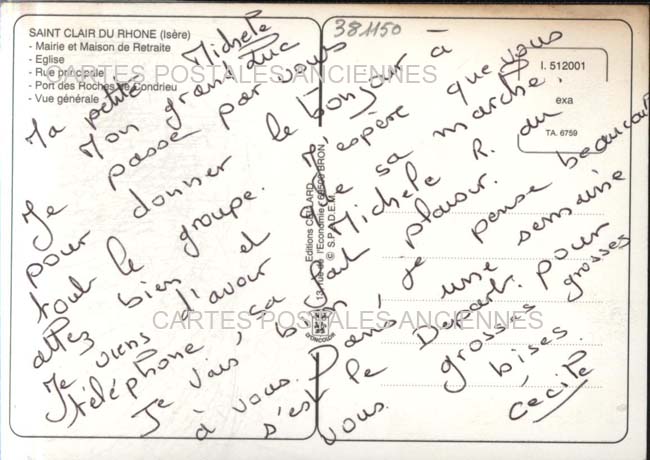 SAINT CLAIR DU RHONE (Isère)
- Mairie et Maison de Retraite
- Eglise
- Rue principale
- Port des Roches de Condrieu
- Vue générale
381150
I. 512001
exa
TA. 6759
Editions CELLARD
13, rue de l'Economie 69500 BRON
© S.P.A.D.E.M.
D'ONCOLOR
CARTES POSTALES ANCIENNES
CARTES POSTALES ANCIENNES
Ma petite Michele
Mon grand duc
Je passe par vous
pour donner le bonjour à
tout le groupe. J'espère que vous
allez bien et que sa marche.
Je viens d'avoir Michele R. du
téléphone, sa fait plaisir.
Je vais bien, je pense beaucoup
à vous. Dans une semaine
s'est le Depart. pour
vous. grosses grosses
bises.
Cécile